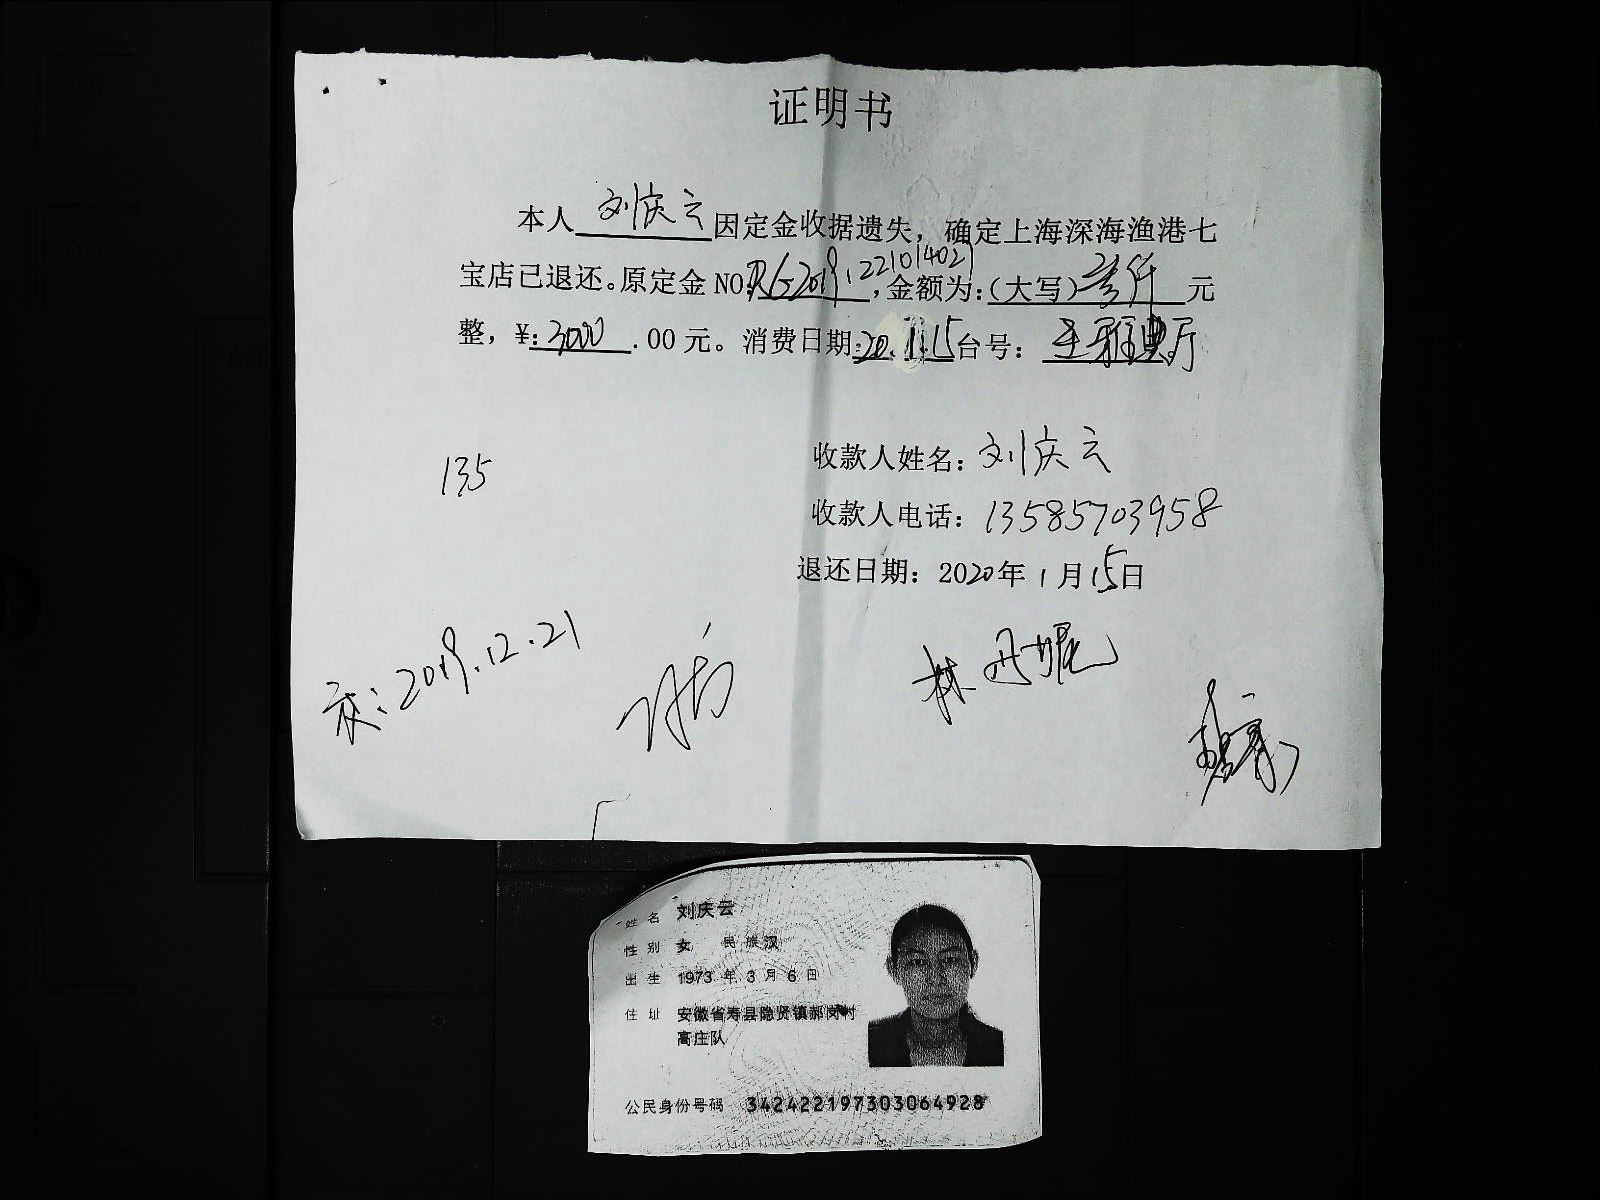 证明书
本人刘庆云因定金收据遗失，确定上海深海渔港七
宝店已退还。原定金NO:，金额为：（大写）叁仟元
整，¥:3000.00元。消费日期:20.1.15台号：雅典厅
收款人姓名：刘庆云
135
收款人电话：13585703958
退还日期：2020年1月15日
2019.12.21
姓名 刘庆云
性别 女 民族 汉
出生 1973年3月6日
住址 安徽省寿县隐贤镇郝岗村
高庄队
公民身份号码 342422197303064928